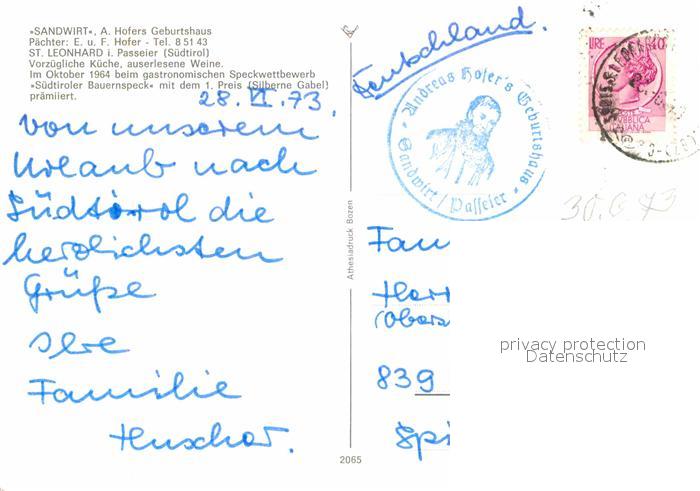 »SANDWIRT«, A. Hofers Geburtshaus
Pächter: E. u. F. Hofer - Tel. 8 51 43
ST. LEONHARD i. Passeier (Südtirol)
Vorzügliche Küche, auserlesene Weine.
Im Oktober 1964 beim gastronomischen Speckwettbewerb
»Südtiroler Bauernspeck« mit dem 1. Preis (Silberne Gabel)
prämiiert.
28. VI. 73.
von unserem
Urlaub nach
Südtirol die
herzlichsten
Grüße
Ihre
Familie
2065
Athesiadruck Bozen
Deutschland.
Andreas Hofer's Geburtshaus
Sandwirt / Passeier
LIRE 40
30.6.73
Fam
Herr
(Obers
839
Spi
privacy protection
Datenschutz